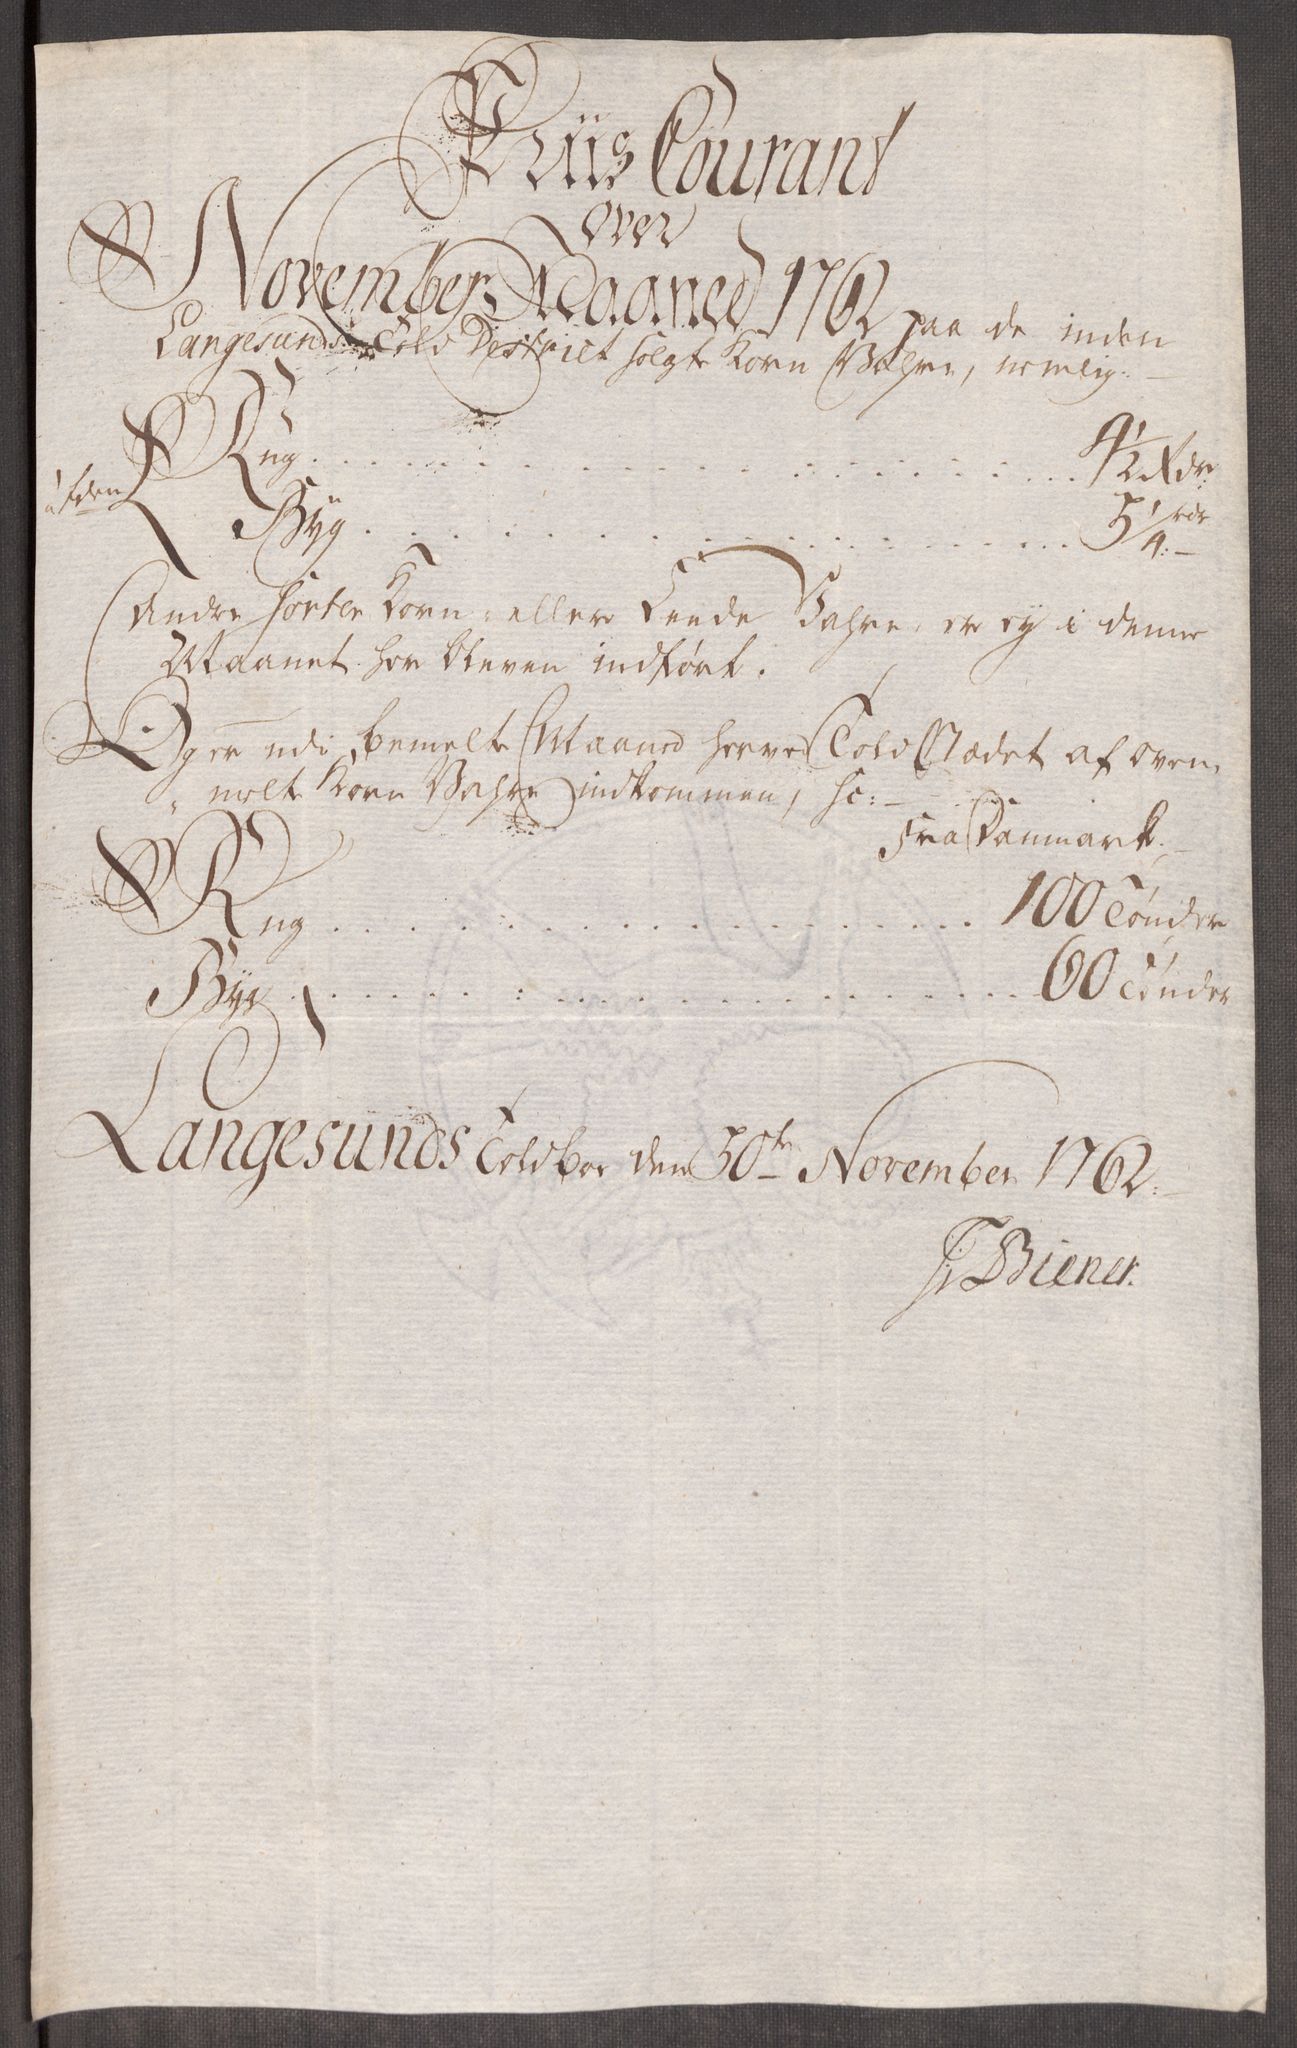 Priis Courant
over
November Maaned 1762 paa de inden
Langesunds Told District solgte Korn Vahre, nemlig:
Rug . . . 4 1/2 Rdr:
Byg . . . 5 1/4 rdr:
Andre Sorter Korn eller Feede Vahre, er ey i denne
Maanet her bleven indført.
Og er udi bemelte Maaned herved Told Stædet af oven-
melte Korn Vahre indkommen, Sc:
Fra Danmark.
Rug . . . 100 Tønder
Byg . . . 60 Tønder
Langesunds Toldboe den 30te November 1762.
Biener.